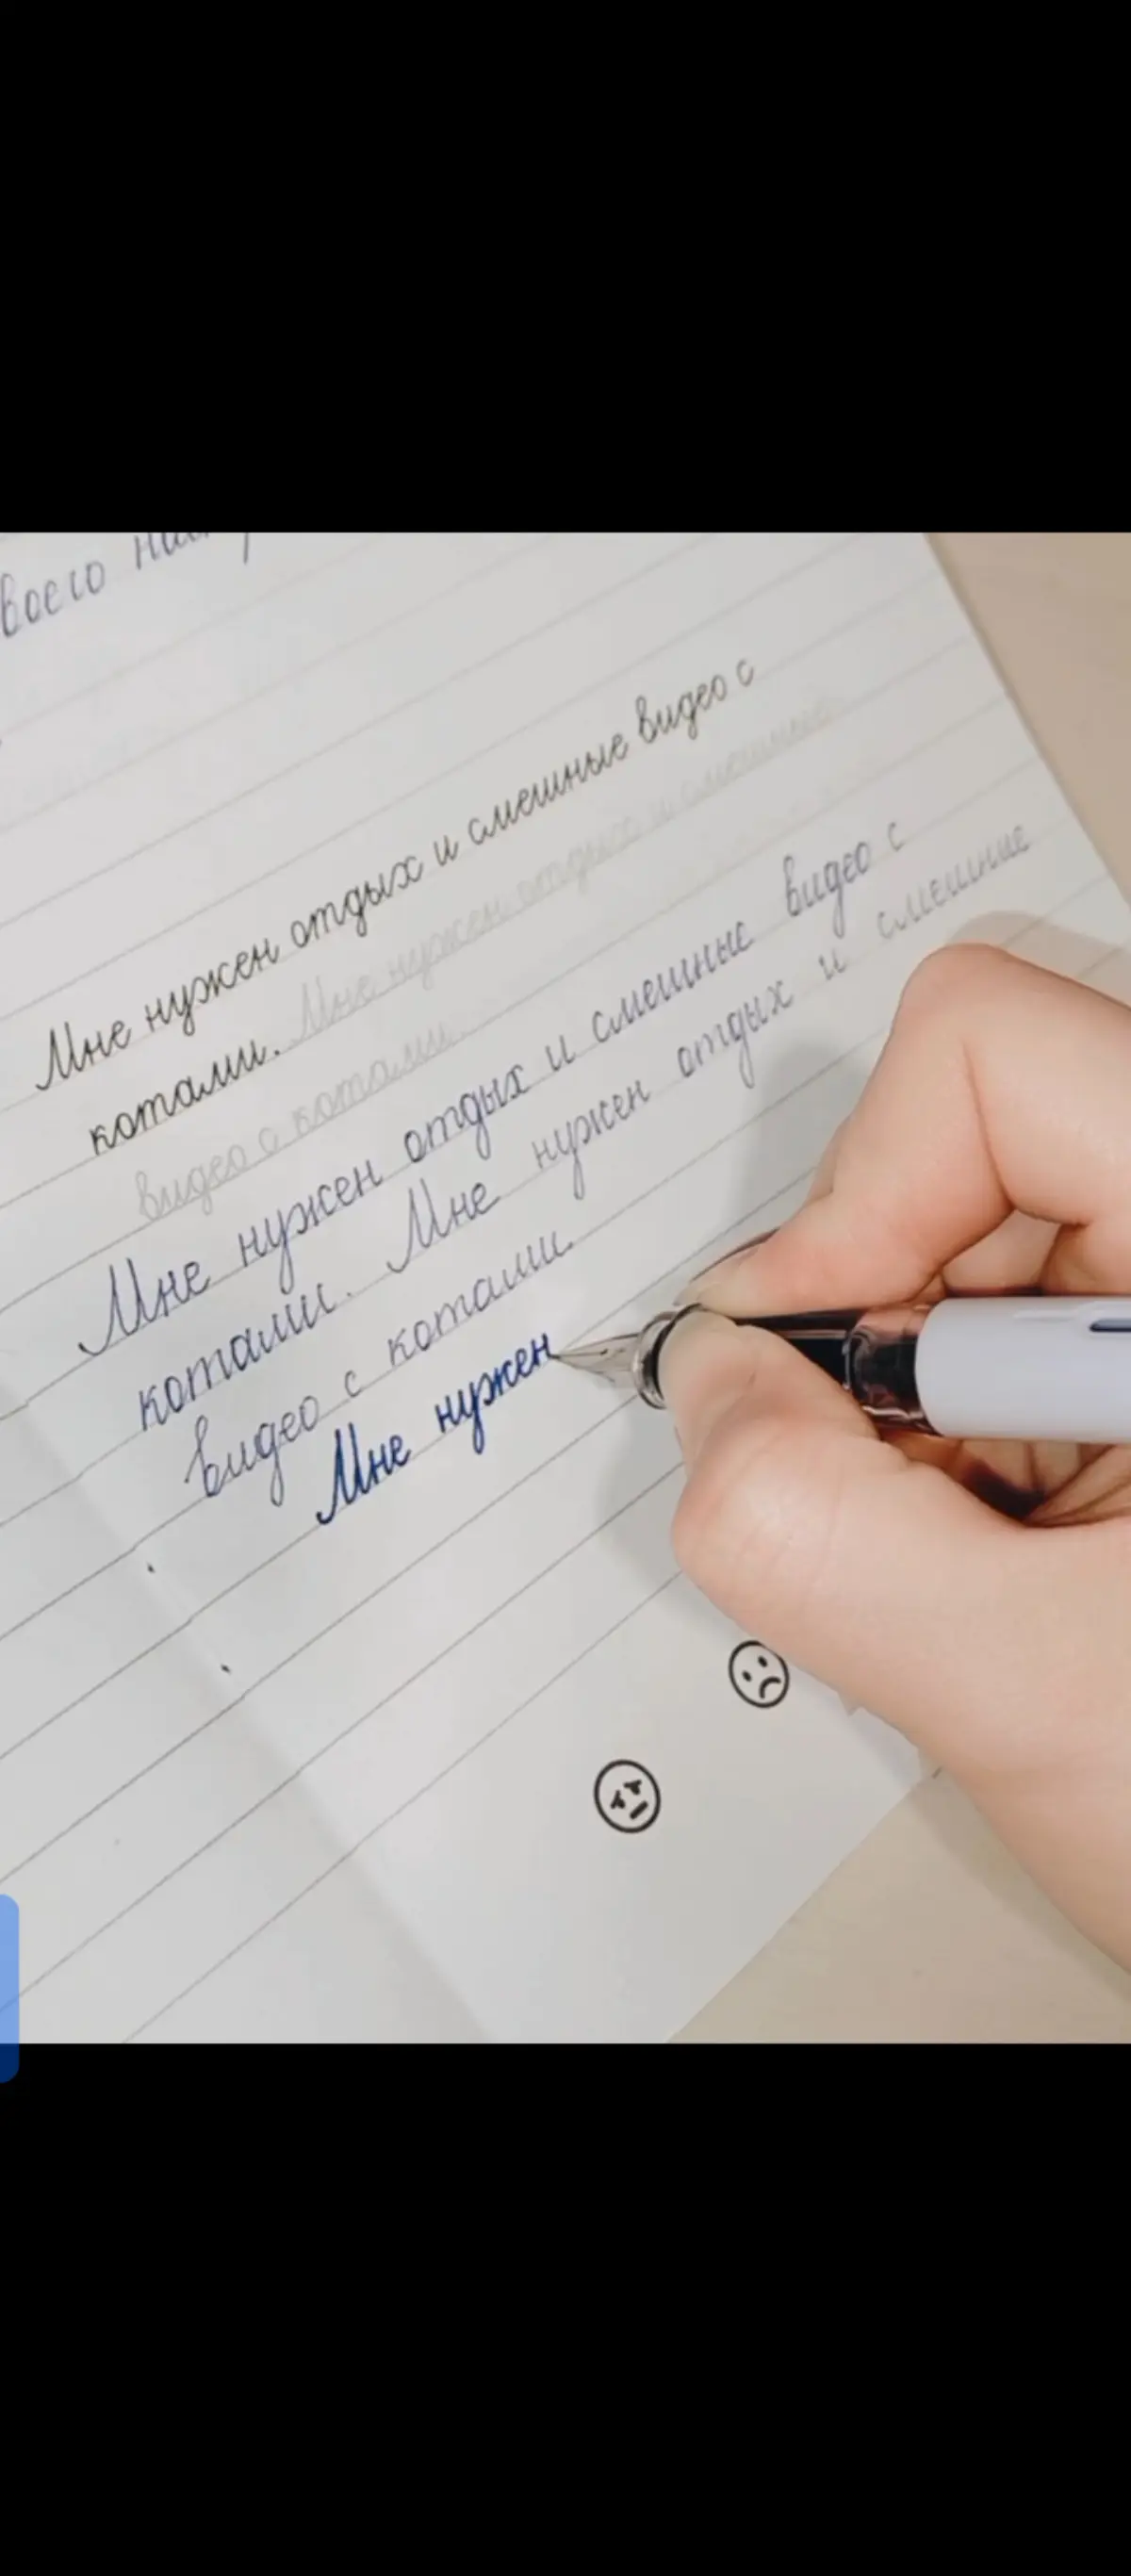 Мне нужен отдых и смешные видео с
котами. Мне нужен отдых и смешные
видео с котами.
Мне нужен отдых и смешные видео с
котами. Мне нужен отдых и смешние
видео с котами.
Мне нужен